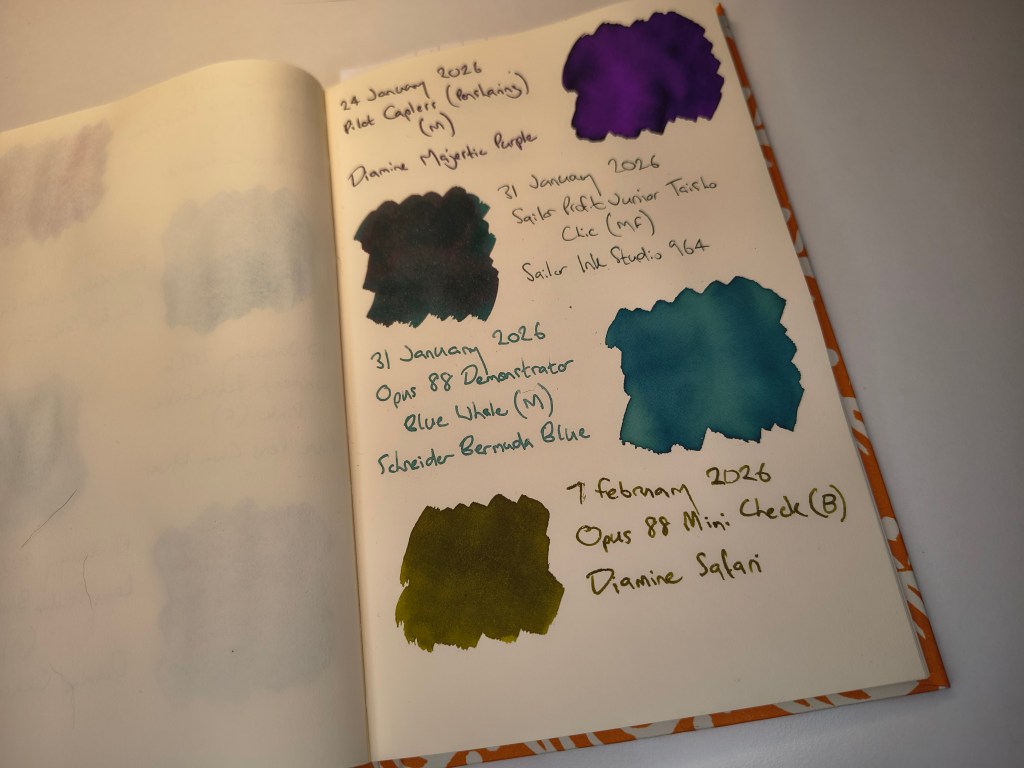 24 January 2026
Pilot Capless (Penslaing)
(M)
Diamine Majestic Purple
31 January 2026
Sailor Profit Junior Taisho
Chic (MF)
Sailor Ink Studio 964
31 January 2026
Opus 88 Demonstrator
Blue Whale (M)
Schneider Bermuda Blue
7 February 2026
Opus 88 Mini Check (B)
Diamine Safari